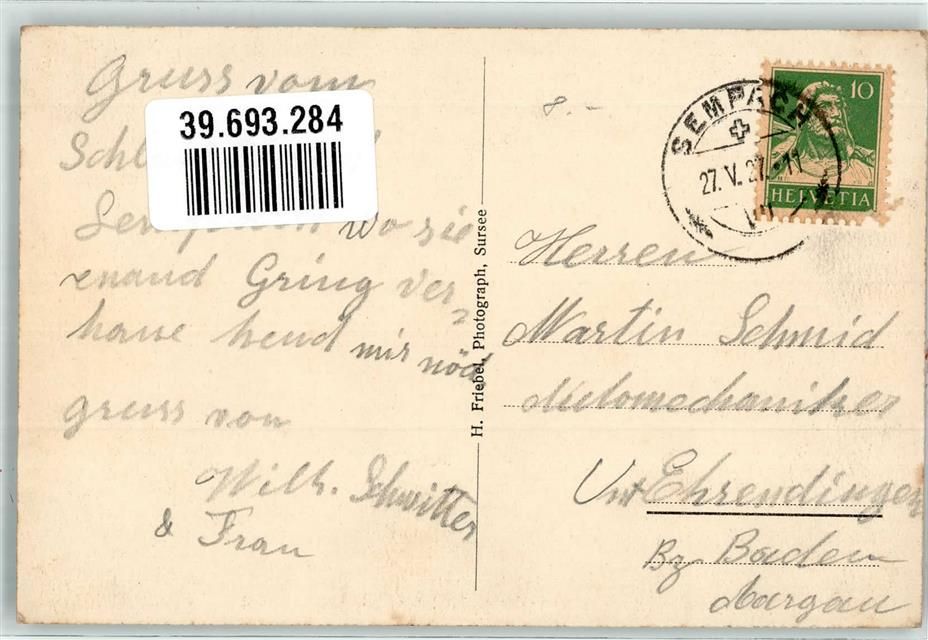 Gruss vom
39.693.284
Schl
Sempach wo sie
enand Gring ver
haue hend mir nöd
gruss von
Wilh. Schmitter
& Frau
H. Friebel, Photograph, Sursee
8.-
SEMPACH
27.V.27.-11
VII
10
HELVETIA
Herren
Martin Schmid
Automechaniker
Unt Ehrendingen
Bz Baden
Aargau